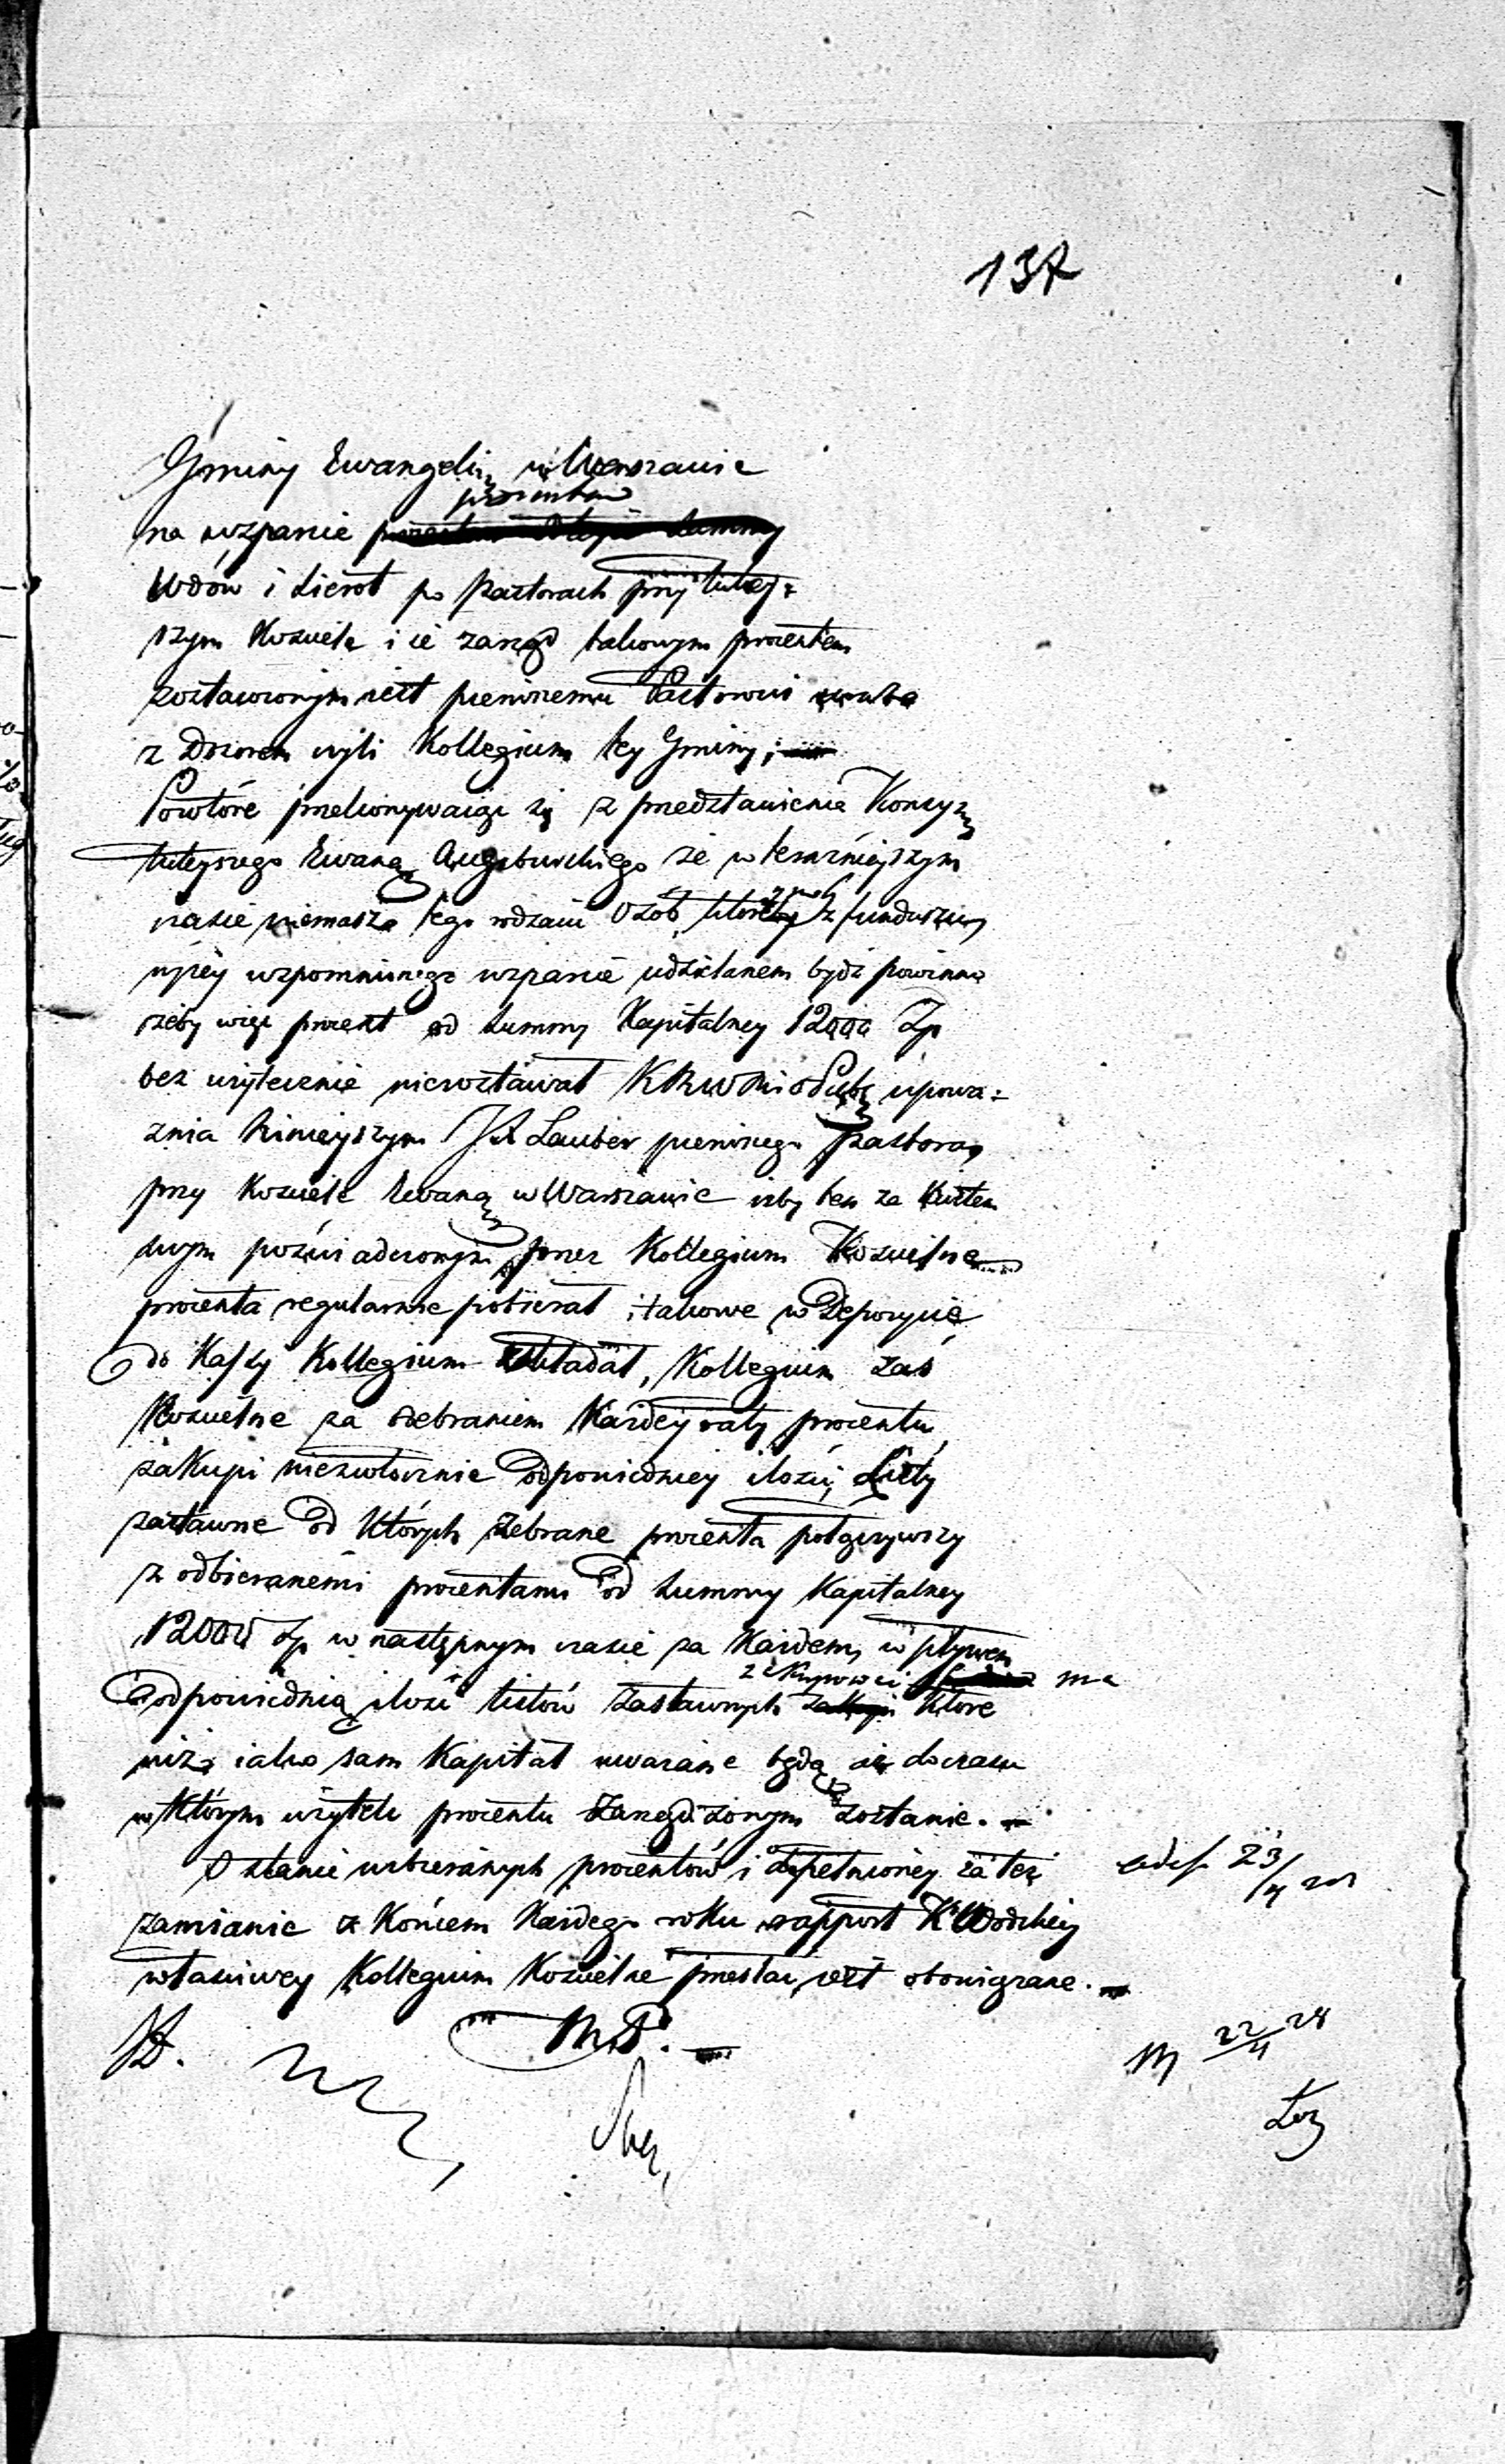 137
Gminy Ewangeli w Warszawie
procentów
na wsparcie
Wdów i Sierot po Pastorach przy tutey=
szym Kosciele i że zarząd takowym procentem
zostawionym iest pierwszemu Pastorowi
z Dozorem czyli Kollegium tey Gminy;
Powtóre przekonywaiąc się z przedstawienia Konsys
tuteyszego Ewang Augsburskiego że w teraźnieyszym
czasie niemasz tego rodzaiu Osób, z funduszu
wyżey wspomnionego wsparcie udzielanem bydź powinno
żeby więc procent od Summy Kapitalney 12000 Zp
bez użytecznie niezostawał KRWRiOPub upowa=
żnia Ninieyszym JX Lauber pierwszego Pastora
przy Kosciele Ewang w Warszawie iżby ten za Kwitem
swym poświadczonym przez Kollegium Koscielne
procenta regularnie pobierał i takowe w Depozycie
do Kassy Kollegium składał, Kollegium zaś
Koscielne za odebraniem Każdey raty procentu
zakupi niezwłocznie odpowiedniey ilości Listy
zastawne od Których zebrane procenta połączywszy
z odbieranemi procentami od Summy Kapitalney
12000 Zp w następnym czasie za Każdem wpływem
zakupować ma
odpowiednią ilość listów zastawnych Które
niżą iako sam Kapitał uważane będą aż do czasu
w Którym użytek procentu zarządzonym zostanie. -
O stanie uzbieranych procentów i dopełnioney za też
zamianie z Końcem Każdego roku rapport K Wodzkiey
właściwey Kollegium Koscielne przesłać iest obowiązane. -
M.P.
23/4
22/4 28